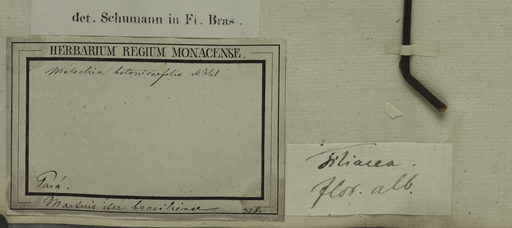 det. Schumann in Fl. Bras.
HERBARIUM REGIUM MONACENSE.
Melochia betonicaefolia St Hil
Pará.
Martius iter brasiliense
Tiliacea.
flor. alb.